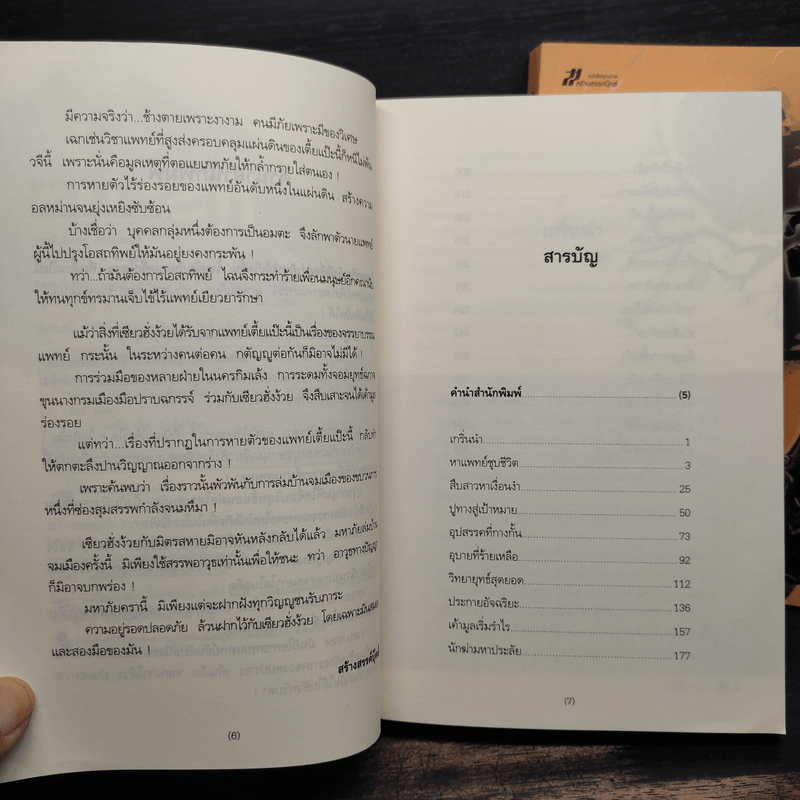 มีความจริงว่า...ช้างตายเพราะงางาม คนมีภัยเพราะมีของวิเศษ
เฉกเช่นวิชาแพทย์ที่สูงส่งครอบคลุมแผ่นดินของเตี้ยแป๊ะนี้ก็หนีไม่พ้น
วจีนี้ เพราะนั่นคือมูลเหตุที่ตอแยเภทภัยให้กล้ำกรายใส่ตนเอง !
การหายตัวไร้ร่องรอยของแพทย์อันดับหนึ่งในแผ่นดิน สร้างความ
อลหม่านจนยุ่งเหยิงซับซ้อน
บ้างเชื่อว่า บุคคลกลุ่มหนึ่งต้องการเป็นอมตะ จึงลักพาตัวนายแพทย์
ผู้นี้ไปปรุงโอสถทิพย์ให้มันอยู่ยงคงกระพัน !
ทว่า...ถ้ามันต้องการโอสถทิพย์ ไฉนจึงกระทำร้ายเพื่อนมนุษย์อีกคณานับ
ให้ทนทุกข์ทรมานเจ็บไข้ไร้แพทย์เยียวยารักษา
แม้ว่าสิ่งที่เซียวฮั่งง้วยได้รับจากแพทย์เตี้ยแป๊ะนี้เป็นเรื่องของจรรยาบรรณ
แพทย์ กระนั้น ในระหว่างคนต่อคน กตัญญูต่อกันก็มิอาจไม่มีได้ !
การร่วมมือของหลายฝ่ายในนครกิมเล้ง การระดมทั้งจอมยุทธ์ฉกาจ
ขุนนางกรมเมืองมือปราบฉกรรจ์ ร่วมกับเซียวฮั่งง้วย จึงสืบเสาะจนได้เค้ามูล
ร่องรอย
แต่ทว่า...เรื่องที่ปรากฏในการหายตัวของแพทย์เตี้ยแป๊ะนี้ กลับทำ
ให้ตกตะลึงปานวิญญาณออกจากร่าง !
เพราะค้นพบว่า เรื่องราวนั้นพัวพันกับการล่มบ้านจมเมืองของขบวนการ
หนึ่งที่ซ่องสุมสรรพกำลังจนมหึมา !
เซียวฮั่งง้วยกับมิตรสหายมิอาจหันหลังกลับได้แล้ว มหาภัยล่มบ้าน
จมเมืองครั้งนี้ มิเพียงใช้สรรพอาวุธเท่านั้นเพื่อให้ชนะ ทว่า อาวุธทางปัญญา
ก็มิอาจบกพร่อง !
มหาภัยครานี้ มิเพียงแต่จะฝากฝังทุกวิญญูชนรับภาระ
ความอยู่รอดปลอดภัย ล้วนฝากไว้กับเซียวฮั่งง้วย โดยเฉพาะมันสมอง
และสองมือของมัน !
สร้างสรรค์บุ๊คส์
(6)
สร้างสรรค์บุ๊คส์
สารบัญ
คำนำสำนักพิมพ์ (5)
เกริ่นนำ 1
หาแพทย์ชุบชีวิต 3
สืบสาวหาเงื่อนงำ 25
ปูทางสู่เป้าหมาย 50
อุปสรรคที่กางกั้น 73
อุบายที่ร้ายเหลือ 92
วิทยายุทธ์สุดยอด 112
ประกายอัจฉริยะ 136
เค้ามูลเริ่มรำไร 157
นักฆ่ามหาประลัย 177
(7)